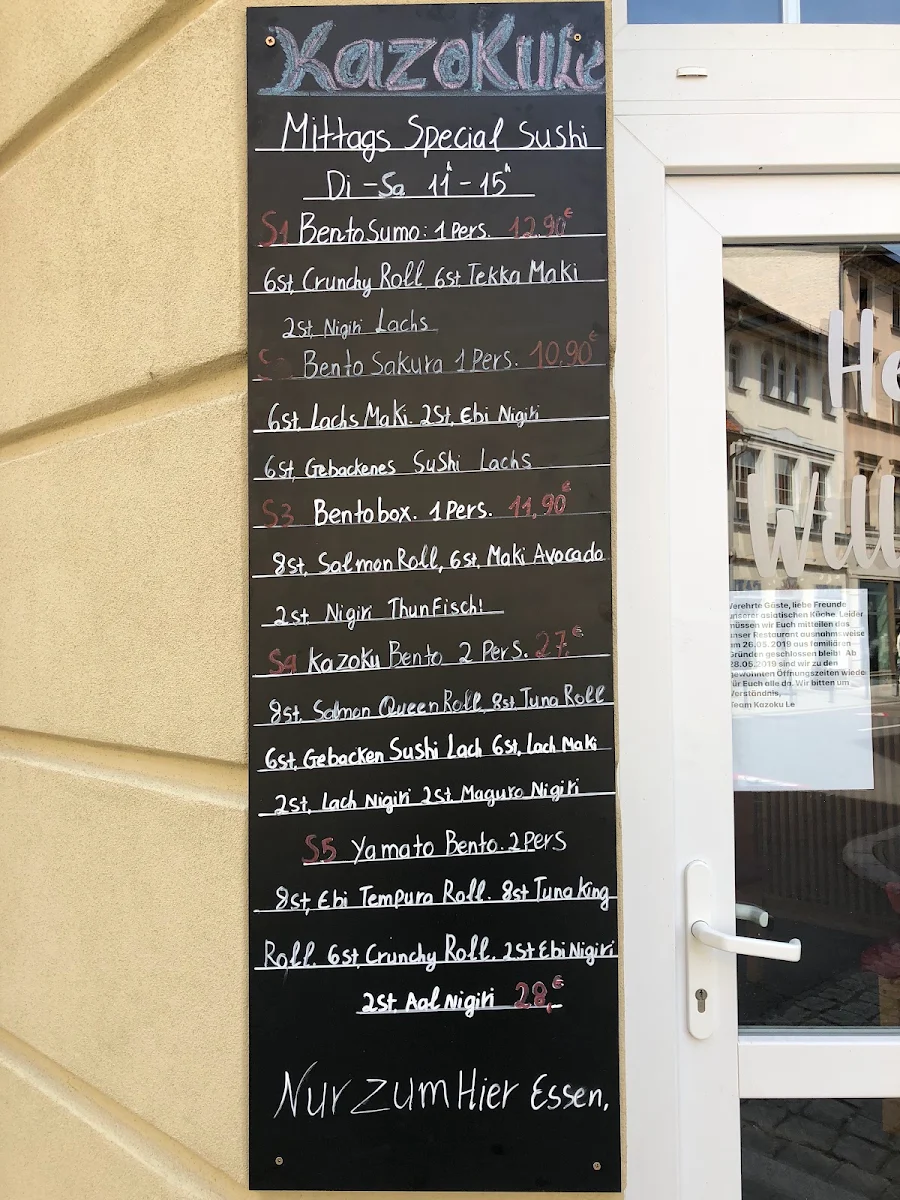 Kazoku Le
Mittags Special Sushi
Di - Sa 11h - 15h
S1 Bento Sumo: 1 Pers. 12.90€
6st, Crunchy Roll, 6st, Tekka Maki
2st, Nigiri Lachs
Bento Sakura 1 Pers. 10.90€
6st, Lachs Maki. 2st, Ebi Nigiri
6st, Gebackenes Sushi Lachs
S3 Bentobox. 1 Pers. 11,90€
8st, Salmon Roll, 6st, Maki Avocado
2st. Nigiri ThunFisch!
S4 Kazoku Bento 2 Pers. 27.€
8st. Salmon Queen Roll, 8st, Tuna Roll
6st, Gebacken Sushi Lach 6st, Lach Maki
2st, Lach Nigiri 2st. Maguro Nigiri
S5 Yamato Bento. 2 Pers
8st, Ebi Tempura Roll. 8st Tuna King
Roll. 6st, Crunchy Roll. 2st Ebi Nigiri
2st. Aal Nigiri 28,-€
Nur zum Hier Essen.
He
Will
Verehrte Gäste, liebe Freunde
unserer asiatischen Küche. Leider
müssen wir Euch mitteilen das
unser Restaurant ausnahmsweise
am 26.05.2019 aus familiären
Gründen geschlossen bleibt. Ab
28.05.2019 sind wir zu den
gewohnten Öffnungszeiten wieder
für Euch alle da. Wir bitten um
Verständnis,
Team Kazoku Le